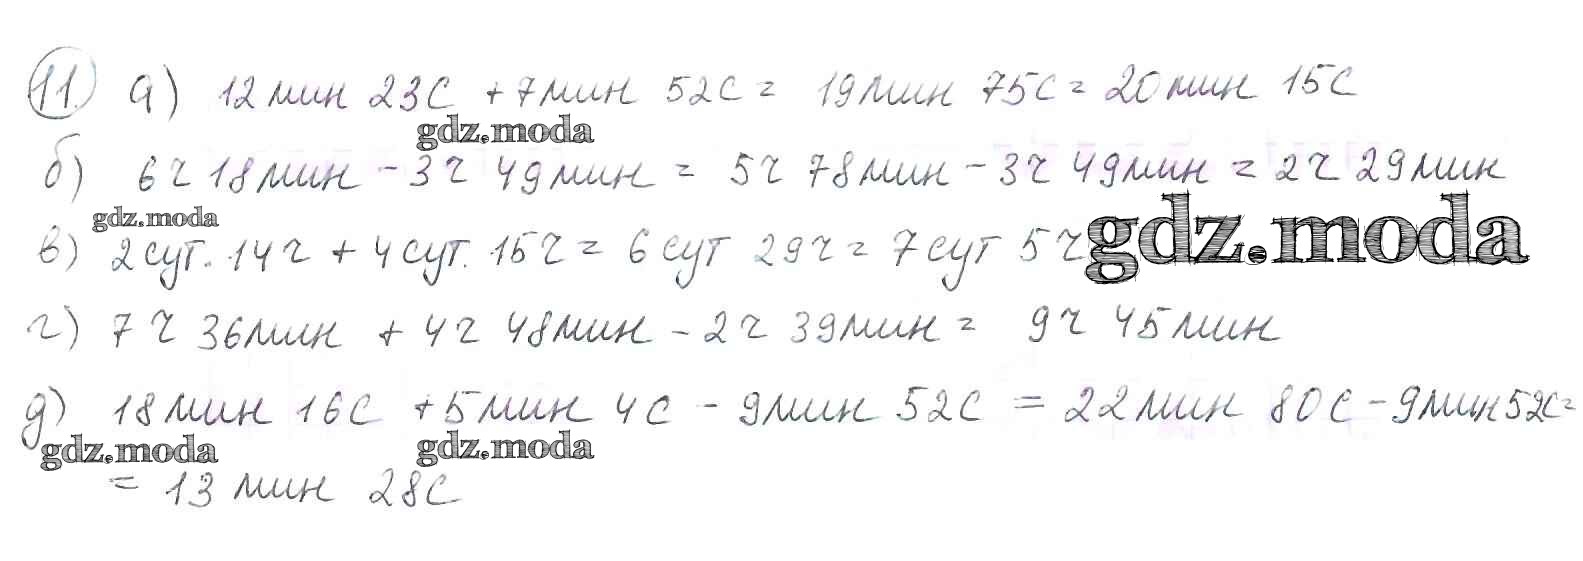 11. а) 12 мин 23 с + 7 мин 52 с = 19 мин 75 с = 20 мин 15 с
gdz.moda
б) 6 ч 18 мин - 3 ч 49 мин = 5 ч 78 мин - 3 ч 49 мин = 2 ч 29 мин
gdz.moda gdz.moda
в) 2 сут. 14 ч + 4 сут. 15 ч = 6 сут 29 ч = 7 сут 5 ч
г) 7 ч 36 мин + 4 ч 48 мин - 2 ч 39 мин = 9 ч 45 мин
д) 18 мин 16 с + 5 мин 4 с - 9 мин 52 с = 22 мин 80 с - 9 мин 52 с =
gdz.moda gdz.moda
= 13 мин 28 с